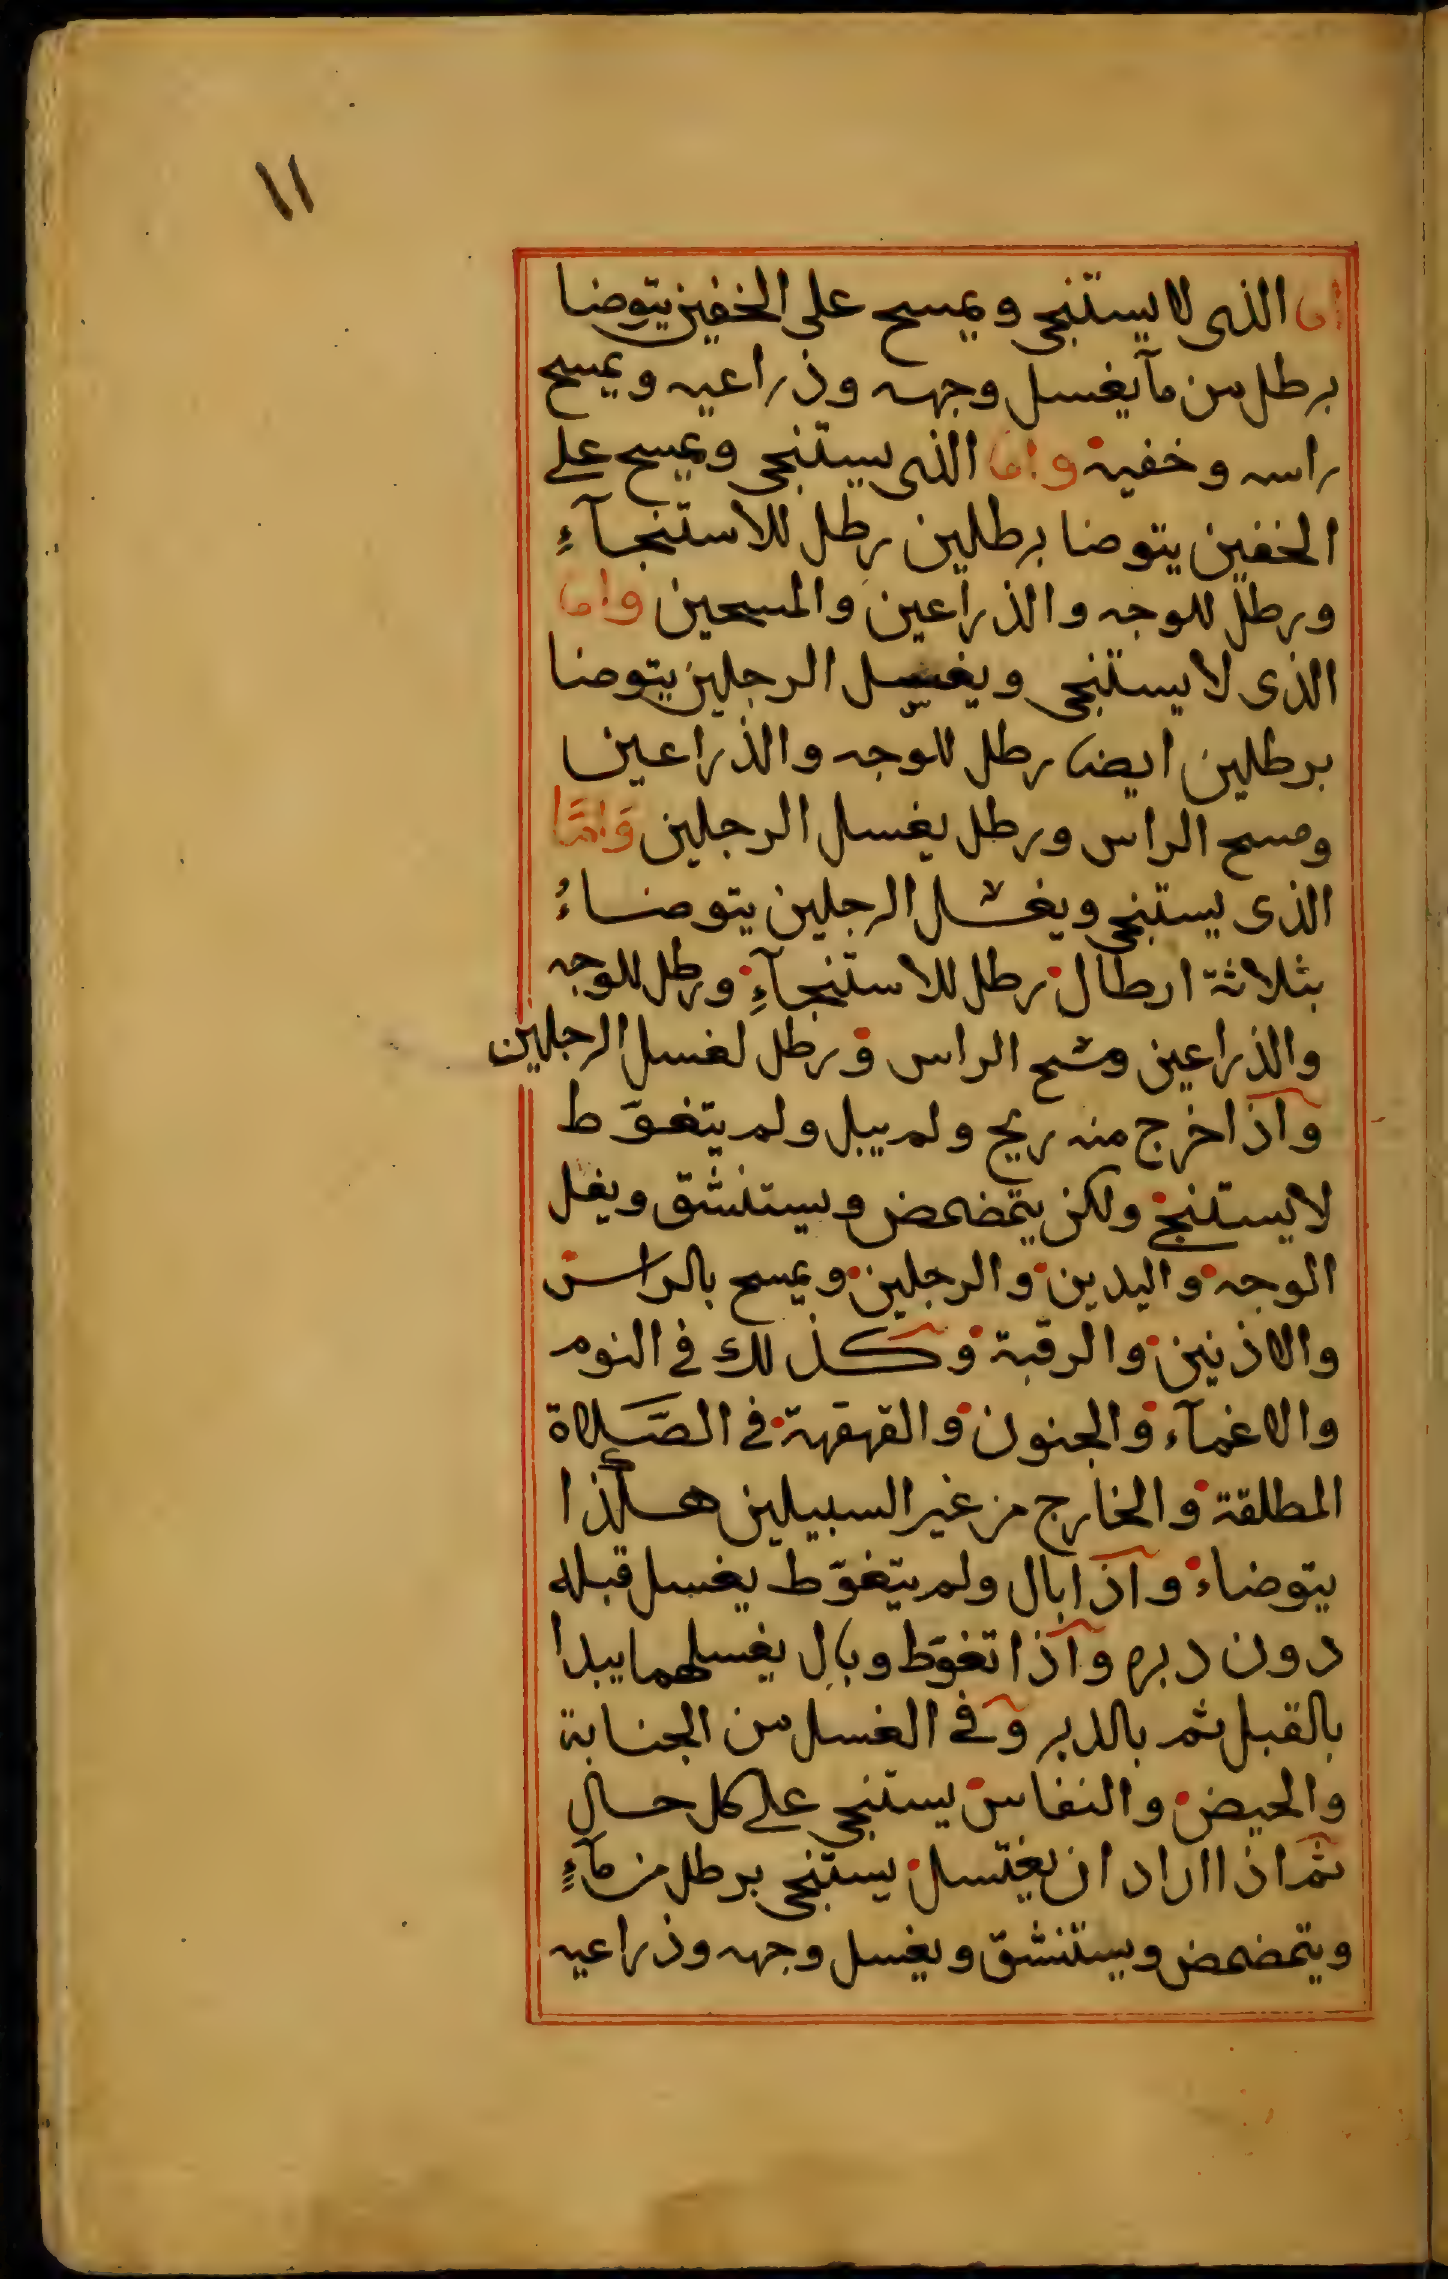 ١١
اما الذى لا يستنجى ويمسح على الخفين يتوضا
برطل من مآ يغسل وجهه وذراعيه ويمسح
راسه وخفيه واما الذى يستنجى ويمسح على
الخفين يتوضا برطلين رطل للاستنجآءِ
ورطل للوجه والذراعين والمسحين واما
الذى لا يستنجى ويغسل الرجلين يتوضا
برطلين ايضا رطل للوجه والذراعين
ومسح الراس ورطل يغسل الرجلين وَامَّا
الذى يستنجى ويغسل الرجلين يتوضاءُ
بثلاثة ارطال رطل للاستنجآءِ ورطل للوجه
والذراعين ومسح الراس ورطل لغسل الرجلين
وآذا خرج منه ريح ولم يبل ولم يتغوّط
لا يستنجى ولكن يتمضمض ويستنشق ويغل
الوجه واليدين والرجلين ويمسح بالراس
والاذنين والرقبة وكذلك فى النوم
والاغمآء والجنون والقهقهة فى الصَّلاة
المطلقة والخارج من غير السبيلين هكذا
يتوضاء وآذا بال ولم يتغوّط يغسل قبله
دون دبره وآذا تغوّط وبال يغسلهما يبدا
بالقبل ثم بالدبر وفى الغسل من الجنابة
والحيض والنفاس يستنجى على كل حال
ثم اذا اراد ان يغتسل يستنجى برطل من مآءٍ
ويتمضمض ويستنشق ويغسل وجهه وذراعيه